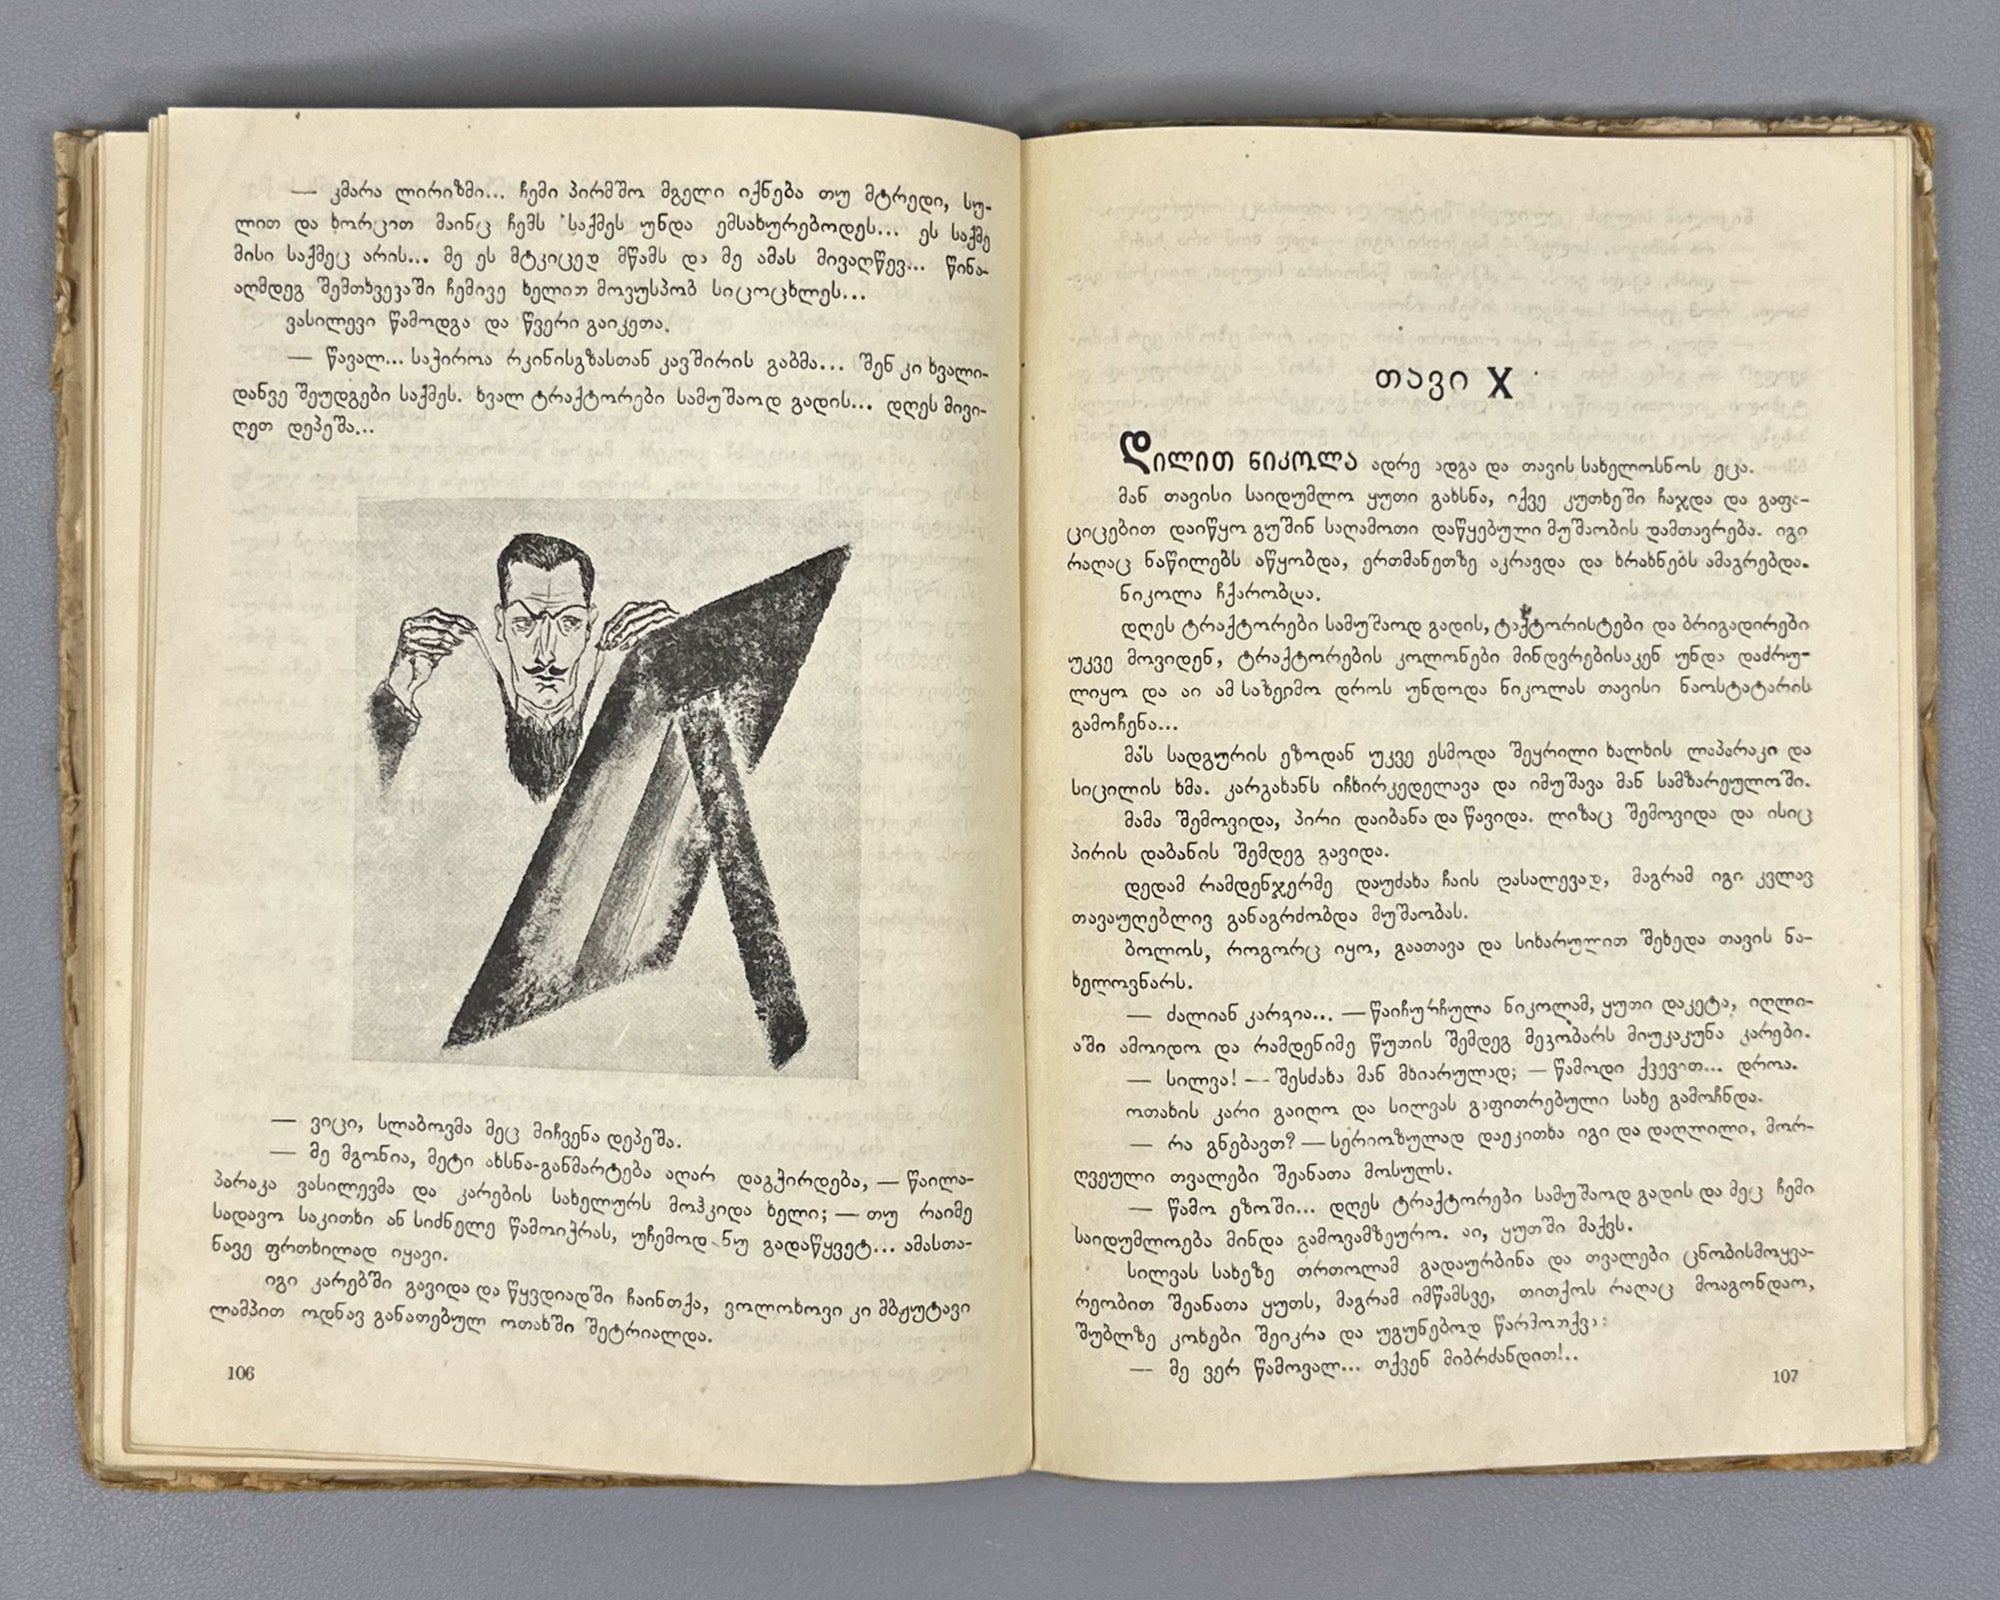 — კმარა ლირიზმი... ჩემი პირმშო მგელი იქნება თუ მტრედი, სუ-
ლით და ხორცით მაინც ჩემს საქმეს უნდა ემსახურებოდეს... ეს საქმე
მისი საქმეც არის... მე ეს მტკიცედ მწამს და მე ამას მივაღწევ... წინა-
აღმდეგ შემთხვევაში ჩემივე ხელით მოვუსპობ სიცოცხლეს...
ვასილევი წამოდგა და წვერი გაიკეთა.
— წავალ... საჭიროა რკინისგზასთან კავშირის გაბმა... შენ კი ხვალი-
დანვე შეუდგები საქმეს. ხვალ ტრაქტორები სამუშაოდ გადის... დღეს მივი-
ღეთ დეპეშა...
— ვიცი, სლაბოვმა მეც მიჩვენა დეპეშა.
— მე მგონია, მეტი ახსნა-განმარტება აღარ დაგჭირდება, — წაილა-
პარაკა ვასილევმა და კარების სახელურს მოჰკიდა ხელი; — თუ რაიმე
სადავო საკითხი ან სიძნელე წამოიჭრას, უჩემოდ ნუ გადაწყვეტ... ამასთა-
ნავე ფრთხილად იყავი.
იგი კარებში გავიდა და წყვდიადში ჩაინთქა, ვოლოხოვი კი მბჟუტავი
ლამპით ოდნავ განათებულ ოთახში შეტრიალდა.
106
თავი X
დილით ნიკოლა ადრე ადგა და თავის სახელოსნოს ეცა.
მან თავისი საიდუმლო ყუთი გახსნა, იქვე კუთხეში ჩაჯდა და გაფა-
ციცებით დაიწყო გუშინ საღამოთი დაწყებული მუშაობის დამთავრება. იგი
რაღაც ნაწილებს აწყობდა, ერთმანეთზე აკრავდა და ხრახნებს ამაგრებდა.
ნიკოლა ჩქარობდა.
დღეს ტრაქტორები სამუშაოდ გადის, ტაქტორისტები და ბრიგადირები
უკვე მოვიდენ, ტრაქტორების კოლონები მინდვრებისაკენ უნდა დაძრუ-
ლიყო და აი ამ საზეიმო დროს უნდოდა ნიკოლას თავისი ნაოსტატარის
გამოჩენა...
მას სადგურის ეზოდან უკვე ესმოდა შეყრილი ხალხის ლაპარაკი და
სიცილის ხმა. კარგახანს იჩხირკედელავა და იმუშავა მან სამზარეულოში.
მამა შემოვიდა, პირი დაიბანა და წავიდა. ლიზაც შემოვიდა და ისიც
პირის დაბანის შემდეგ გავიდა.
დედამ რამდენჯერმე დაუძახა ჩაის დასალევად, მაგრამ იგი კვლავ
თავაუღებლივ განაგრძობდა მუშაობას.
ბოლოს, როგორც იყო, გაათავა და სიხარულით შეხედა თავის ნა-
ხელოვნარს.
— ძალიან კარგია... — წაიჩურჩულა ნიკოლამ, ყუთი დაკეტა, იღლი-
აში ამოიდო და რამდენიმე წუთის შემდეგ მეგობარს მიუკაკუნა კარები.
— სილვა! — შესძახა მან მხიარულად; — წამოდი ქვევით... დროა.
ოთახის კარი გაიღო და სილვას გაფითრებული სახე გამოჩნდა.
— რა გნებავთ? — სერიოზულად დაეკითხა იგი და დაღლილი, მორ-
ღვეული თვალები შეანათა მოსულს.
— წამო ეზოში... დღეს ტრაქტორები სამუშაოდ გადის და მეც ჩემი
საიდუმლოება მინდა გამოვამზეურო. აი, ყუთში მაქვს.
სილვას სახეზე თრთოლამ გადაურბინა და თვალები ცნობისმოყვა-
რეობით შეანათა ყუთს, მაგრამ იმწამსვე, თითქოს რაღაც მოაგონდაო,
შუბლზე კოხები შეიკრა და უგუნებოდ წარმოთქვა:
— მე ვერ წამოვალ... თქვენ მიბრძანდით!..
107